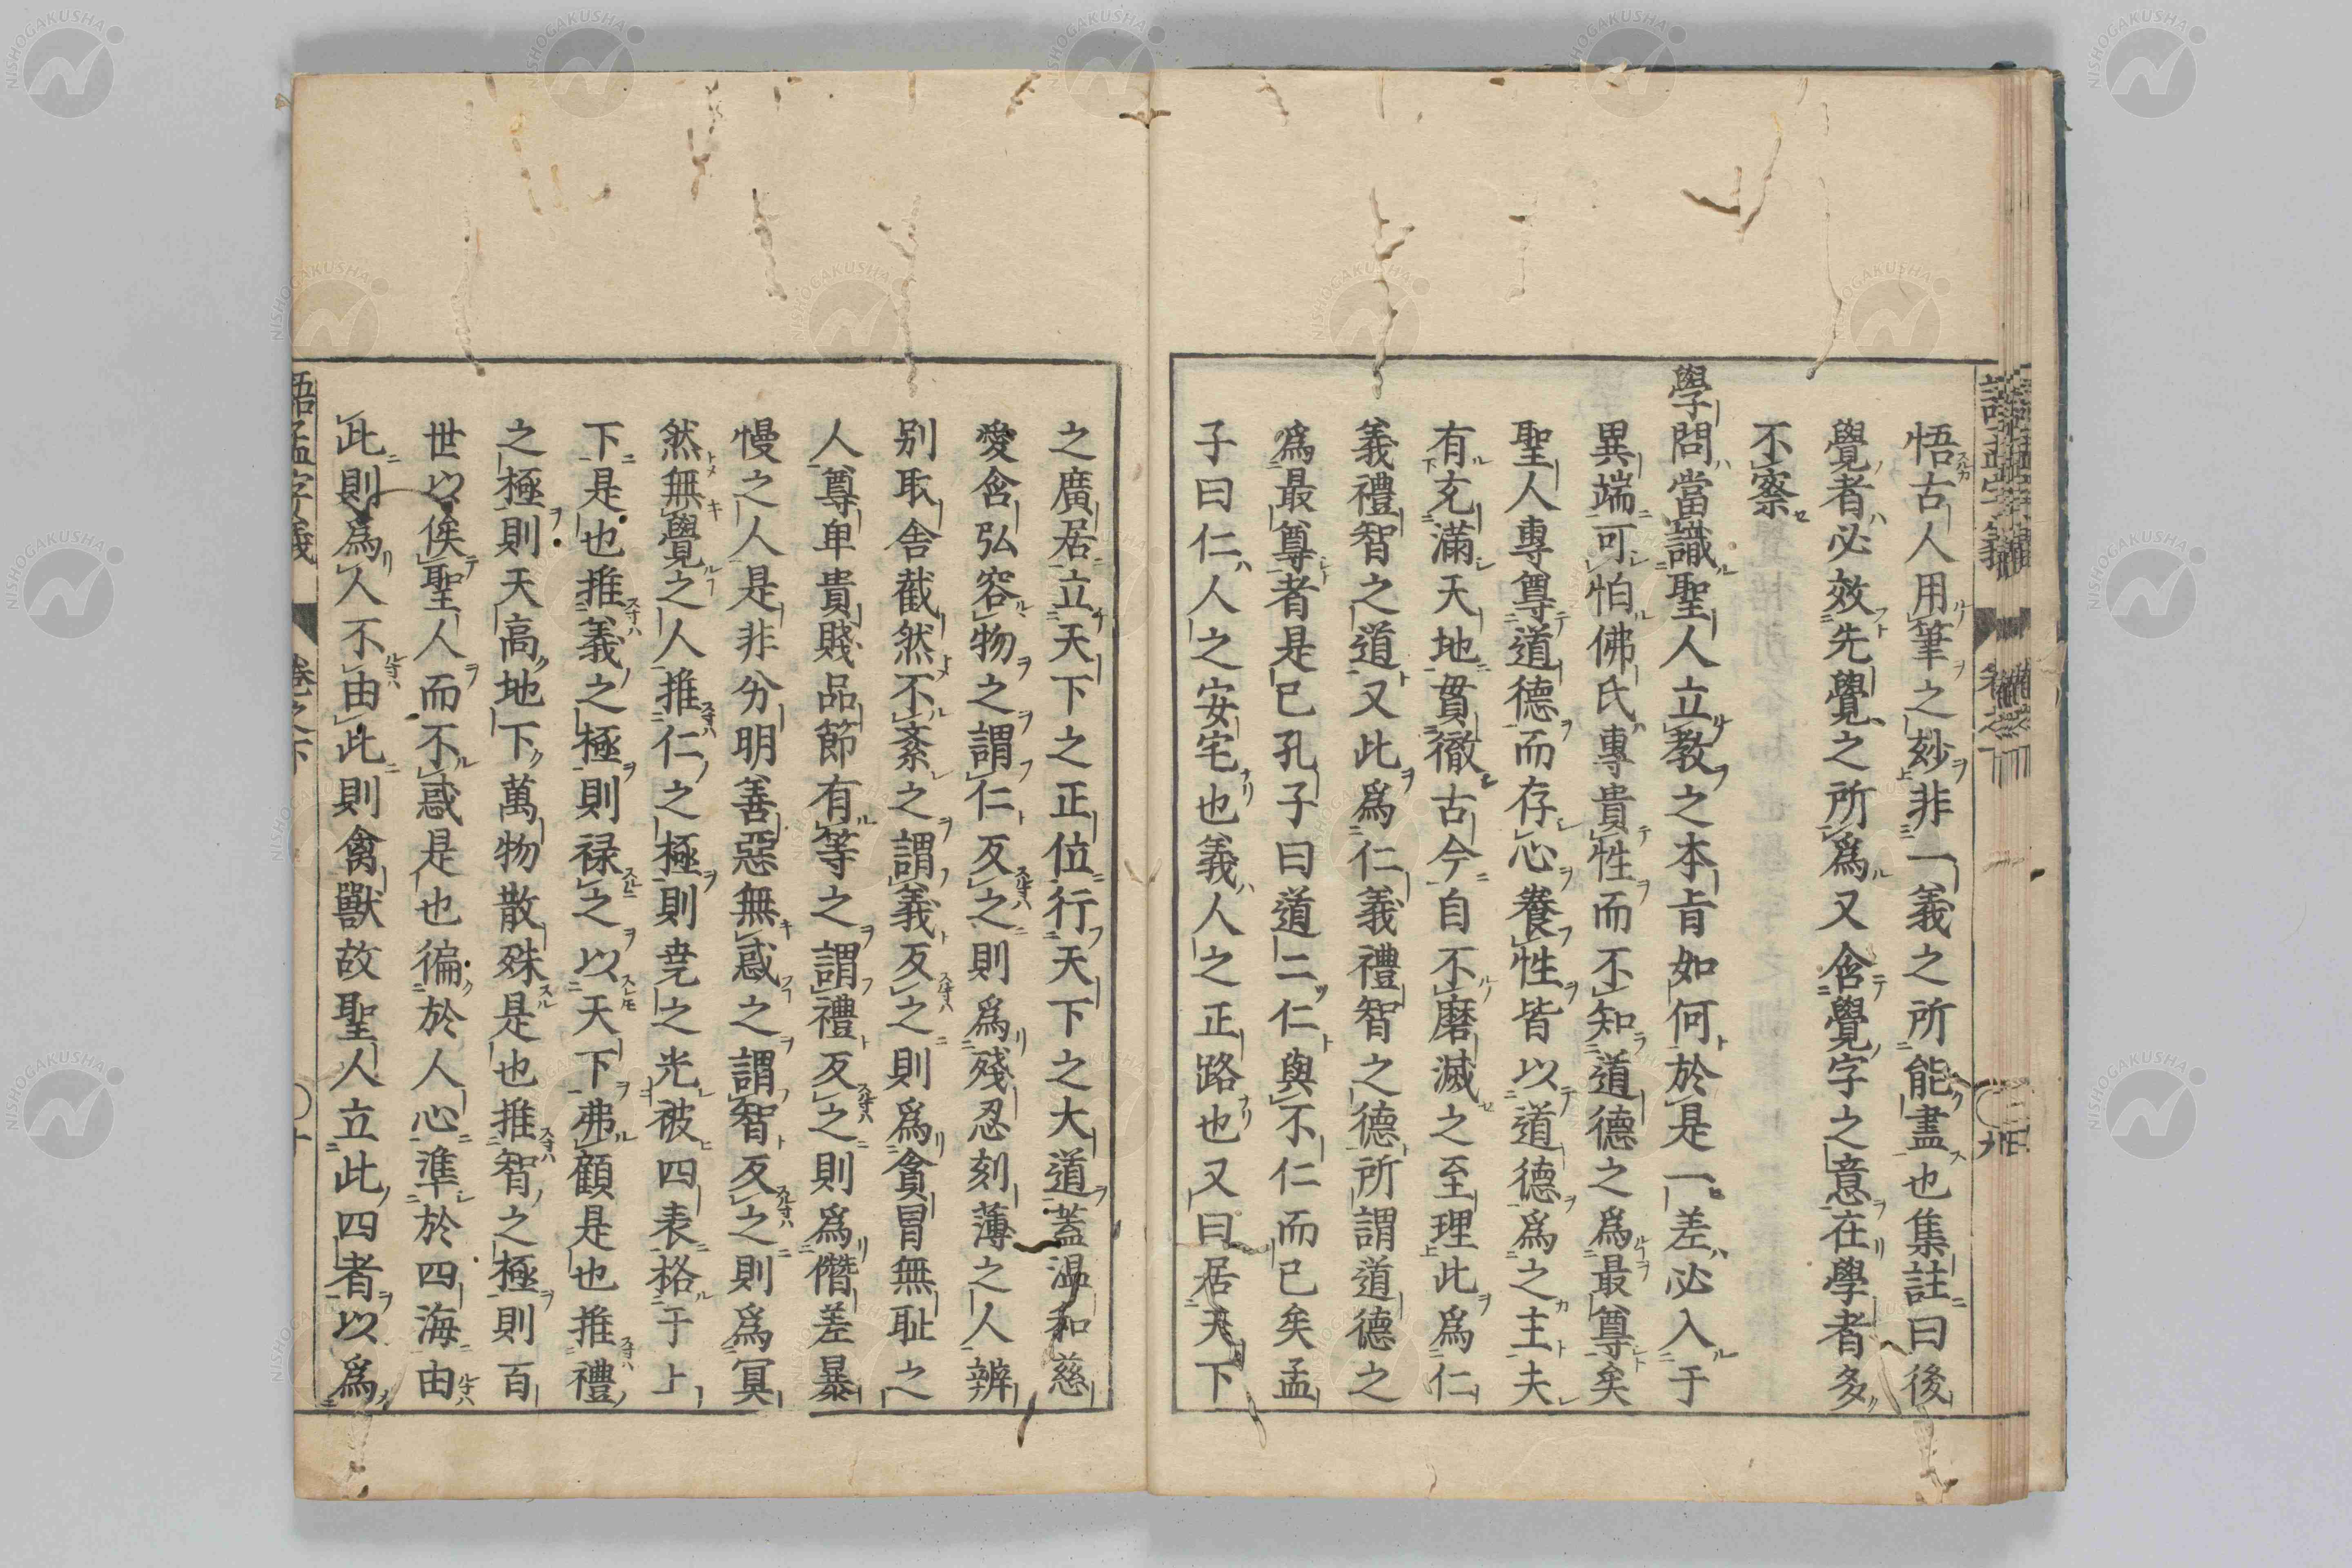 悟古人用筆之妙非一義之所能盡也集註曰後
覺者必效先覺之所爲又含覺字之意在學者多
不察
學問當識聖人立教之本旨如何於是一差必入于
異端可怕佛氏專貴性而不知道德之爲最尊矣
聖人專尊道德而存心養性皆以道德爲之主夫
有充滿天地貫徹古今自不磨滅之至理此爲仁
義禮智之道又此爲仁義禮智之德所謂道德之
爲最尊者是已孔子曰道二仁與不仁而已矣孟
子曰仁人之安宅也義人之正路也又曰居天下
之廣居立天下之正位行天下之大道蓋温和慈
愛含弘容物之謂仁反之則爲殘忍刻薄之人辨
別取舍截然不紊之謂義反之則爲貪冒無耻之
人尊卑貴賤品節有等之謂禮反之則爲僭差暴
慢之人是非分明善惡無惑之謂智反之則爲冥
然無覺之人推仁之極則尭之光被四表格于上
下是也推義之極則禄之以天下弗顧是也推禮
之極則天高地下萬物散殊是也推智之極則百
世以俟聖人而不惑是也徧於人心準於四海由
此則爲人不由此則禽獸故聖人立此四者以爲
語孟字義 卷之下 十